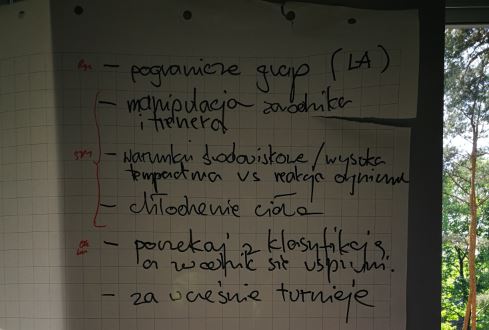 - pogranicze grup (LA)
- manipulacja zawodnika
i trenera
- warunki środowiskowe / wysoka
temperatura vs reakcja organizmu
- chłodzenie ciała
- poczekaj z klasyfikacją
a zawodnik się uspokoi.
- za wcześnie turnieje